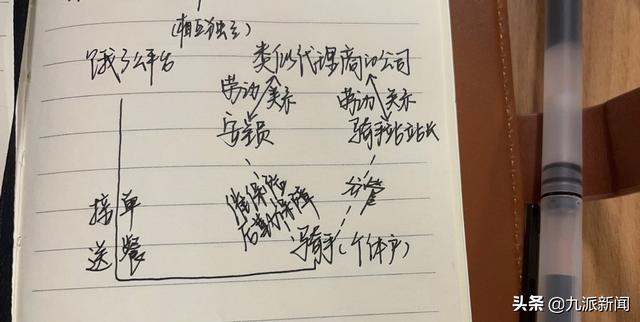 (相互独立)
饿了么平台 类似代理商的公司
劳动 关系 劳动 关系
安全员 骑手站站长
接单 保险 分管
后勤保障
送餐 骑手(个体户)
头条 @九派新闻